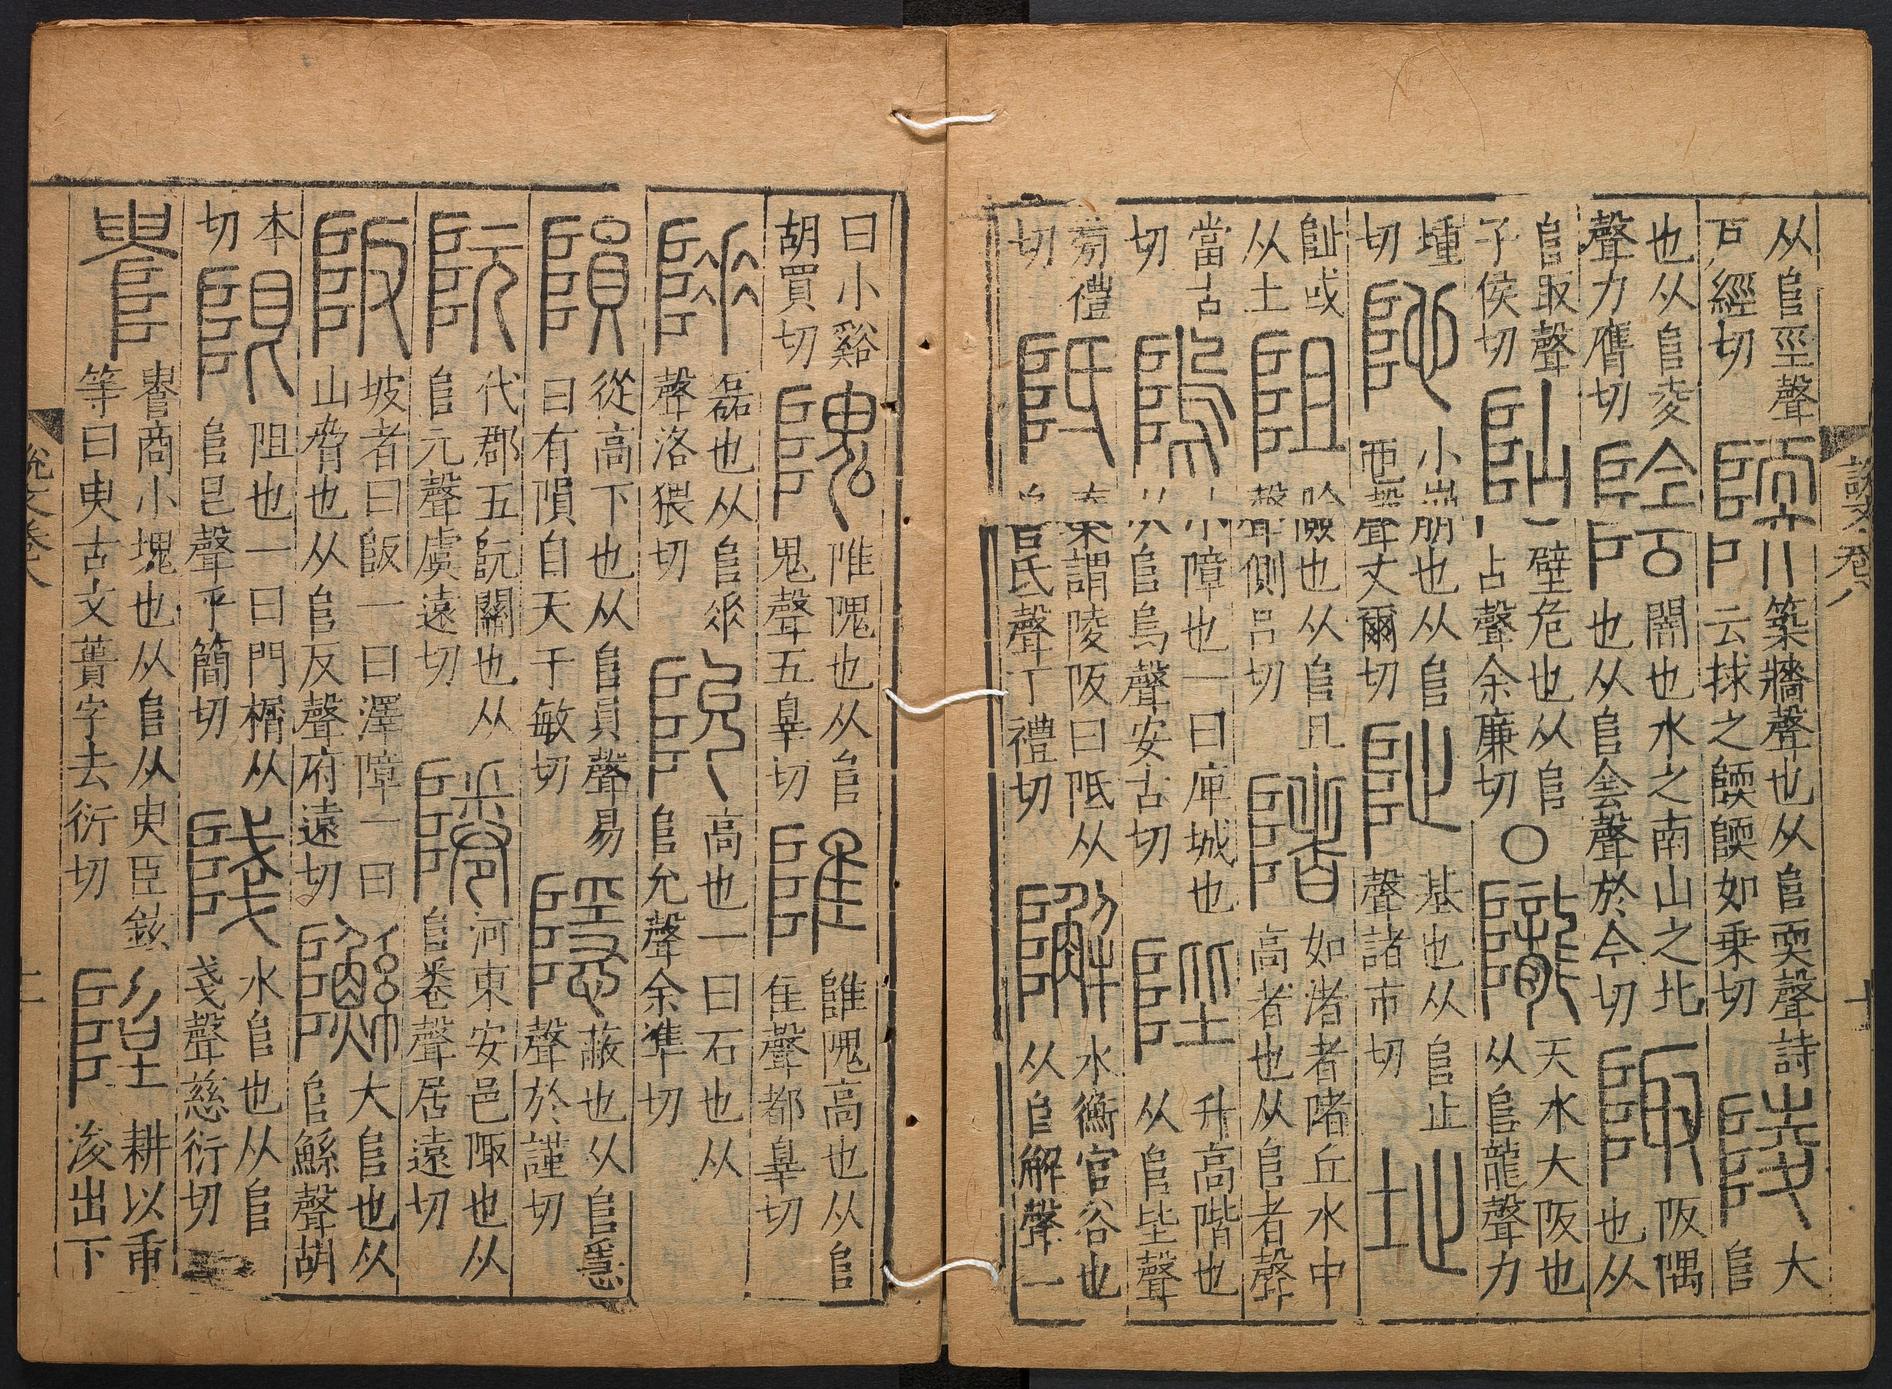 說文卷八
十
从𨸏巠聲
戶經切
陾
築牆聲也从𨸏耎聲詩
云捄之陾陾如乗切
陵
大
𨸏
也从𨸏夌
聲力膺切
陰
闇也水之南山之北
也从𨸏侌聲於今切
陬
阪隅
也从
𨸏取聲
子侯切
阽
壁危也从𨸏
占聲余廉切
○
隴
天水大阪也
从𨸏龍聲力
堹
切
陁
小崩也从𨸏
也聲丈爾切
阯
基也从𨸏止
聲諸市切
址
阯或
从土
阻
險也从𨸏且
聲側呂切
陼
如渚者陼丘水中
高者也从𨸏者聲
當古
切
隖
小障也一曰庳城也
从𨸏烏聲安古切
陛
升高階也
从𨸏坒聲
菊禮
切
阺
秦謂陵阪曰阺从
𨸏氐聲丁禮切
水衡官谷也
从𨸏解聲一
曰小谿
胡買切
隗
陮隗也从𨸏
鬼聲五辠切
陮
陮隗高也从𨸏
隹聲都辠切
磊也从𨸏
聲洛猥切
阭
高也一曰石也从
𨸏允聲余準切
隕
從高下也从𨸏員聲易
曰有隕自天于敏切
隱
蔽也从𨸏㥯
聲於謹切
阮
代郡五阮關也从
𨸏元聲虞遠切
河東安邑陬也从
𨸏卷聲居遠切
阪
坡者曰阪一曰澤障一曰
山脅也从𨸏反聲府遠切
大𨸏也从
𨸏鯀聲胡
本
切
限
阻也一曰門榍从
𨸏皀聲乎簡切
水𨸏也从𨸏
戔聲慈衍切
商小塊也从𨸏从臾臣鉉
等曰臾古文蕢字去衍切
耕以臿
浚出下
說文卷八
十一